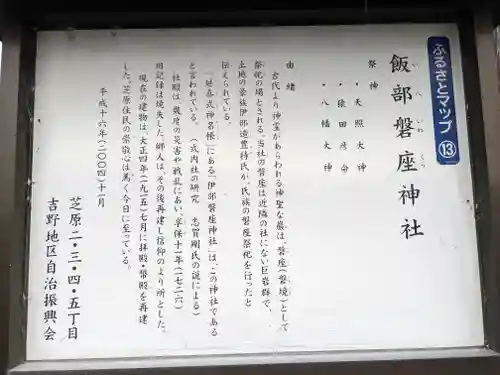 ふるさとマップ⑬
飯部磐座神社
いへ いわ くつ
祭神
・天照大神
・猿田彦命
・八幡大神
由緒
古代より神霊があらわれる神聖な巌は、磐座(磐境)として
祭祀の場とされる。当社の磐座は近隣の社にない巨岩群で、
土地の豪族伊部造豊持氏が、氏族の磐座祭祀を行ったと
伝えられている。
「延喜式神名帳」にある「伊部磐座神社」は、この神社である
と言われている。(式内社の研究 志賀剛氏の説による)
社殿は、幾度の災害や戦乱にあい、享保十一年(一七二六)
旧記録は焼失した。郷人は、その後再建し信仰のより所とした。
現在の建物は、大正四年(一九一五)七月に拝殿・幣殿を再建
した。芝原住民の崇敬心は篤く今日に至っている。
平成十六年(二〇〇四)十一月
芝原二・三・四・五丁目
吉野地区自治振興会